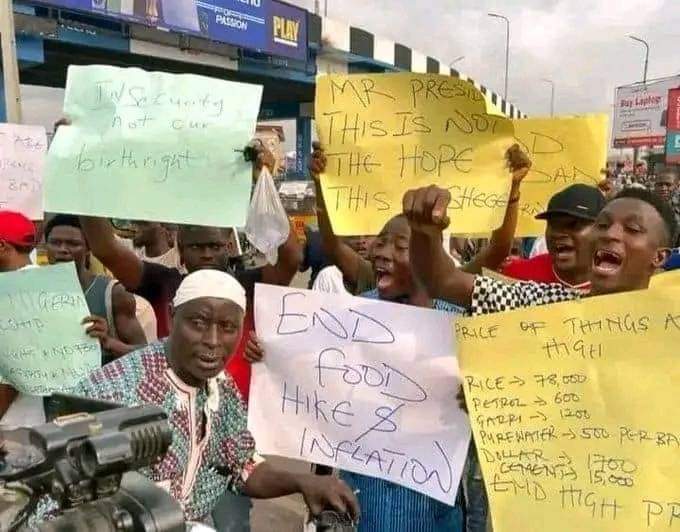 PASSION
PLAY
INSecurity
not our
birthright
MR PRESID
THIS IS NOT
THE HOPE
THIS SHEGE
Buy Laptop
END
FOOD
HIKE &
INFLATION
PRICE OF THINGS A
HIGH
RICE → 78,000
PETROL → 600
GARRI → 1200
PUREWATER → 500 PER BA
DOLLAR → 1700
CEMENT → 15,000
END HIGH PR